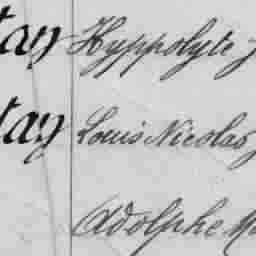 tay Hyppolyte J
tay Louis Nicolas
Adolphe Ma